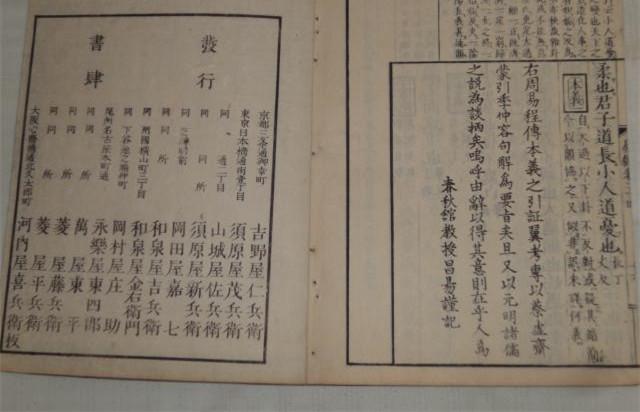 柔也君子道長小人道憂也
本義
自大過以下卦不反對或疑其錯簡
今以韻協之又似非誤未詳何義
右周易程傳本義之引証翼考專以蔡虛齋
蒙引李仲容句解為要旨矣且又以元明諸儒
之説為談柄矣嗚呼由辭以得其意則在乎人焉
春秋舘教授昌易謹記
發行
書肆
京都三条通御幸町
吉野屋仁兵衛
東京日本橋通壹丁目
須原屋茂兵衛
同 通二丁目
山城屋佐兵衛
同 同所
須原屋新兵衛
岡田屋嘉七
和泉屋吉兵衛
同 兩國横山町三丁目
和泉屋金右衛門
同 下谷池之端仲町
岡村屋庄助
尾州名古屋本町通
永樂屋東四郎
同 同所
萬屋東平
同 同所
菱屋藤兵衛
同 同所
菱屋平兵衛
大阪心斎橋通北久太郎町
河内屋喜兵衛板